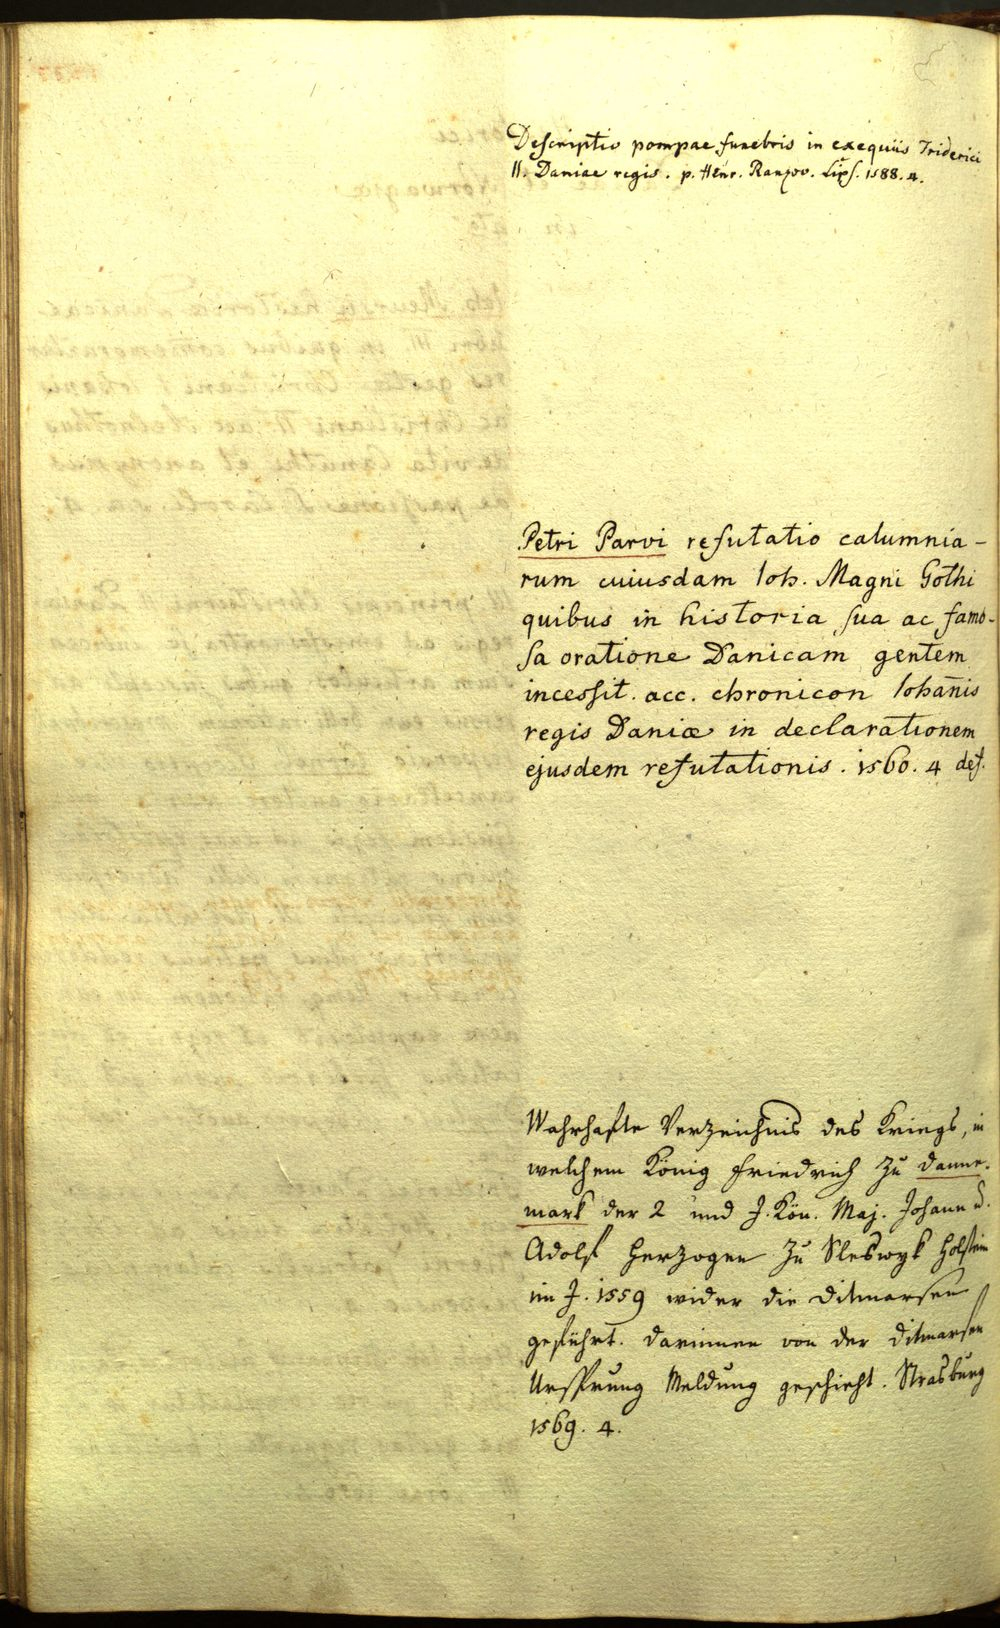 Descriptio pompae funebris in exequiis Friderici
II. Daniae regis. p. Henr. Ranzov. Lips. 1588. 4.
Petri Parvi refutatio calumnia-
rum cuiusdam Ioh. Magni Gothi
quibus in historia sua ac famo-
sa oratione Danicam gentem
incessit. acc. chronicon Iohan̄is
regis Daniæ in declarationem
ejusdem refutationis. 1560. 4 def.
Wahrhafte Verzeichnis des Kriegs, in
welchem König Friedrich zu Danne-
mark der 2 und J. Kön. Maj. Johann u.
Adolf Herzogen zu Sleswyk Holstein
im J. 1559 wider die Ditmarsen
geführt. darinnen von der Ditmarsen
Ursprung Meldung geschieht. Strasburg
1569. 4.